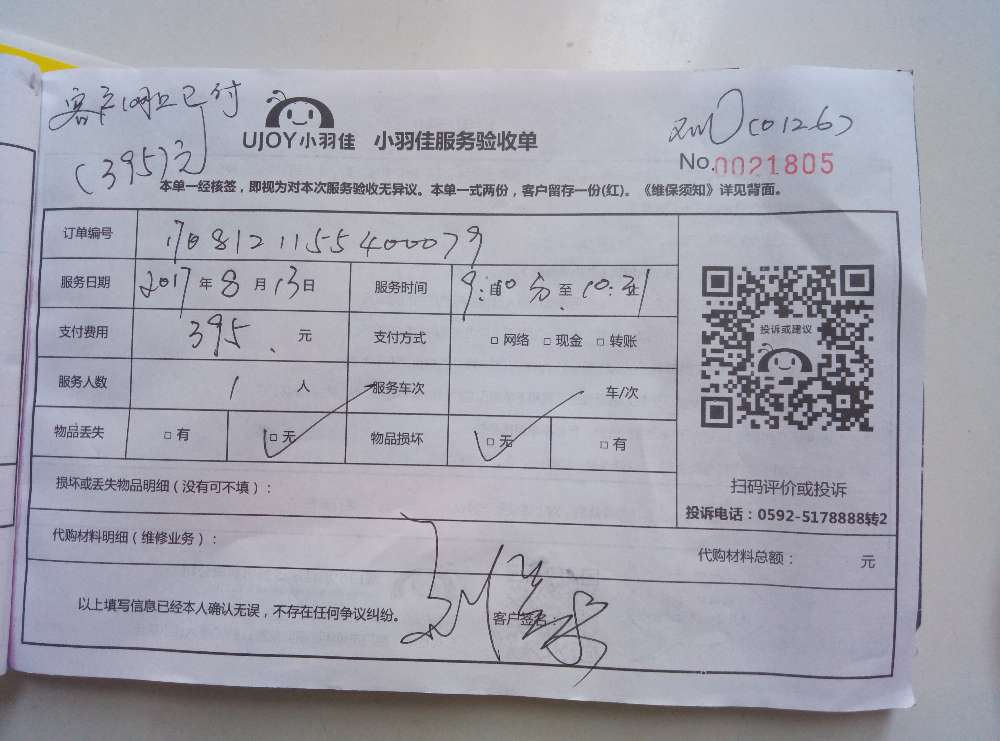 客户网上已付
(395)元
UJOY小羽佳 小羽佳服务验收单
(0126)
No.0021805
本单一经核签，即视为对本次服务验收无异议。本单一式两份，客户留存一份(红)。《维保须知》详见背面。
订单编号 170812115540007９
服务日期 2017年8月13日 服务时间 9: 分至10:
支付费用 395、元 支付方式 □网络 □现金 □转账
服务人数 1人 服务车次 车/次
物品丢失 □有 □无 物品损坏 □无 □有
投诉或建议
扫码评价或投诉
投诉电话：0592-5178888转2
损坏或丢失物品明细（没有可不填）：
代购材料明细（维修业务）： 代购材料总额： 元
以上填写信息已经本人确认无误，不存在任何争议纠纷。 客户签名：